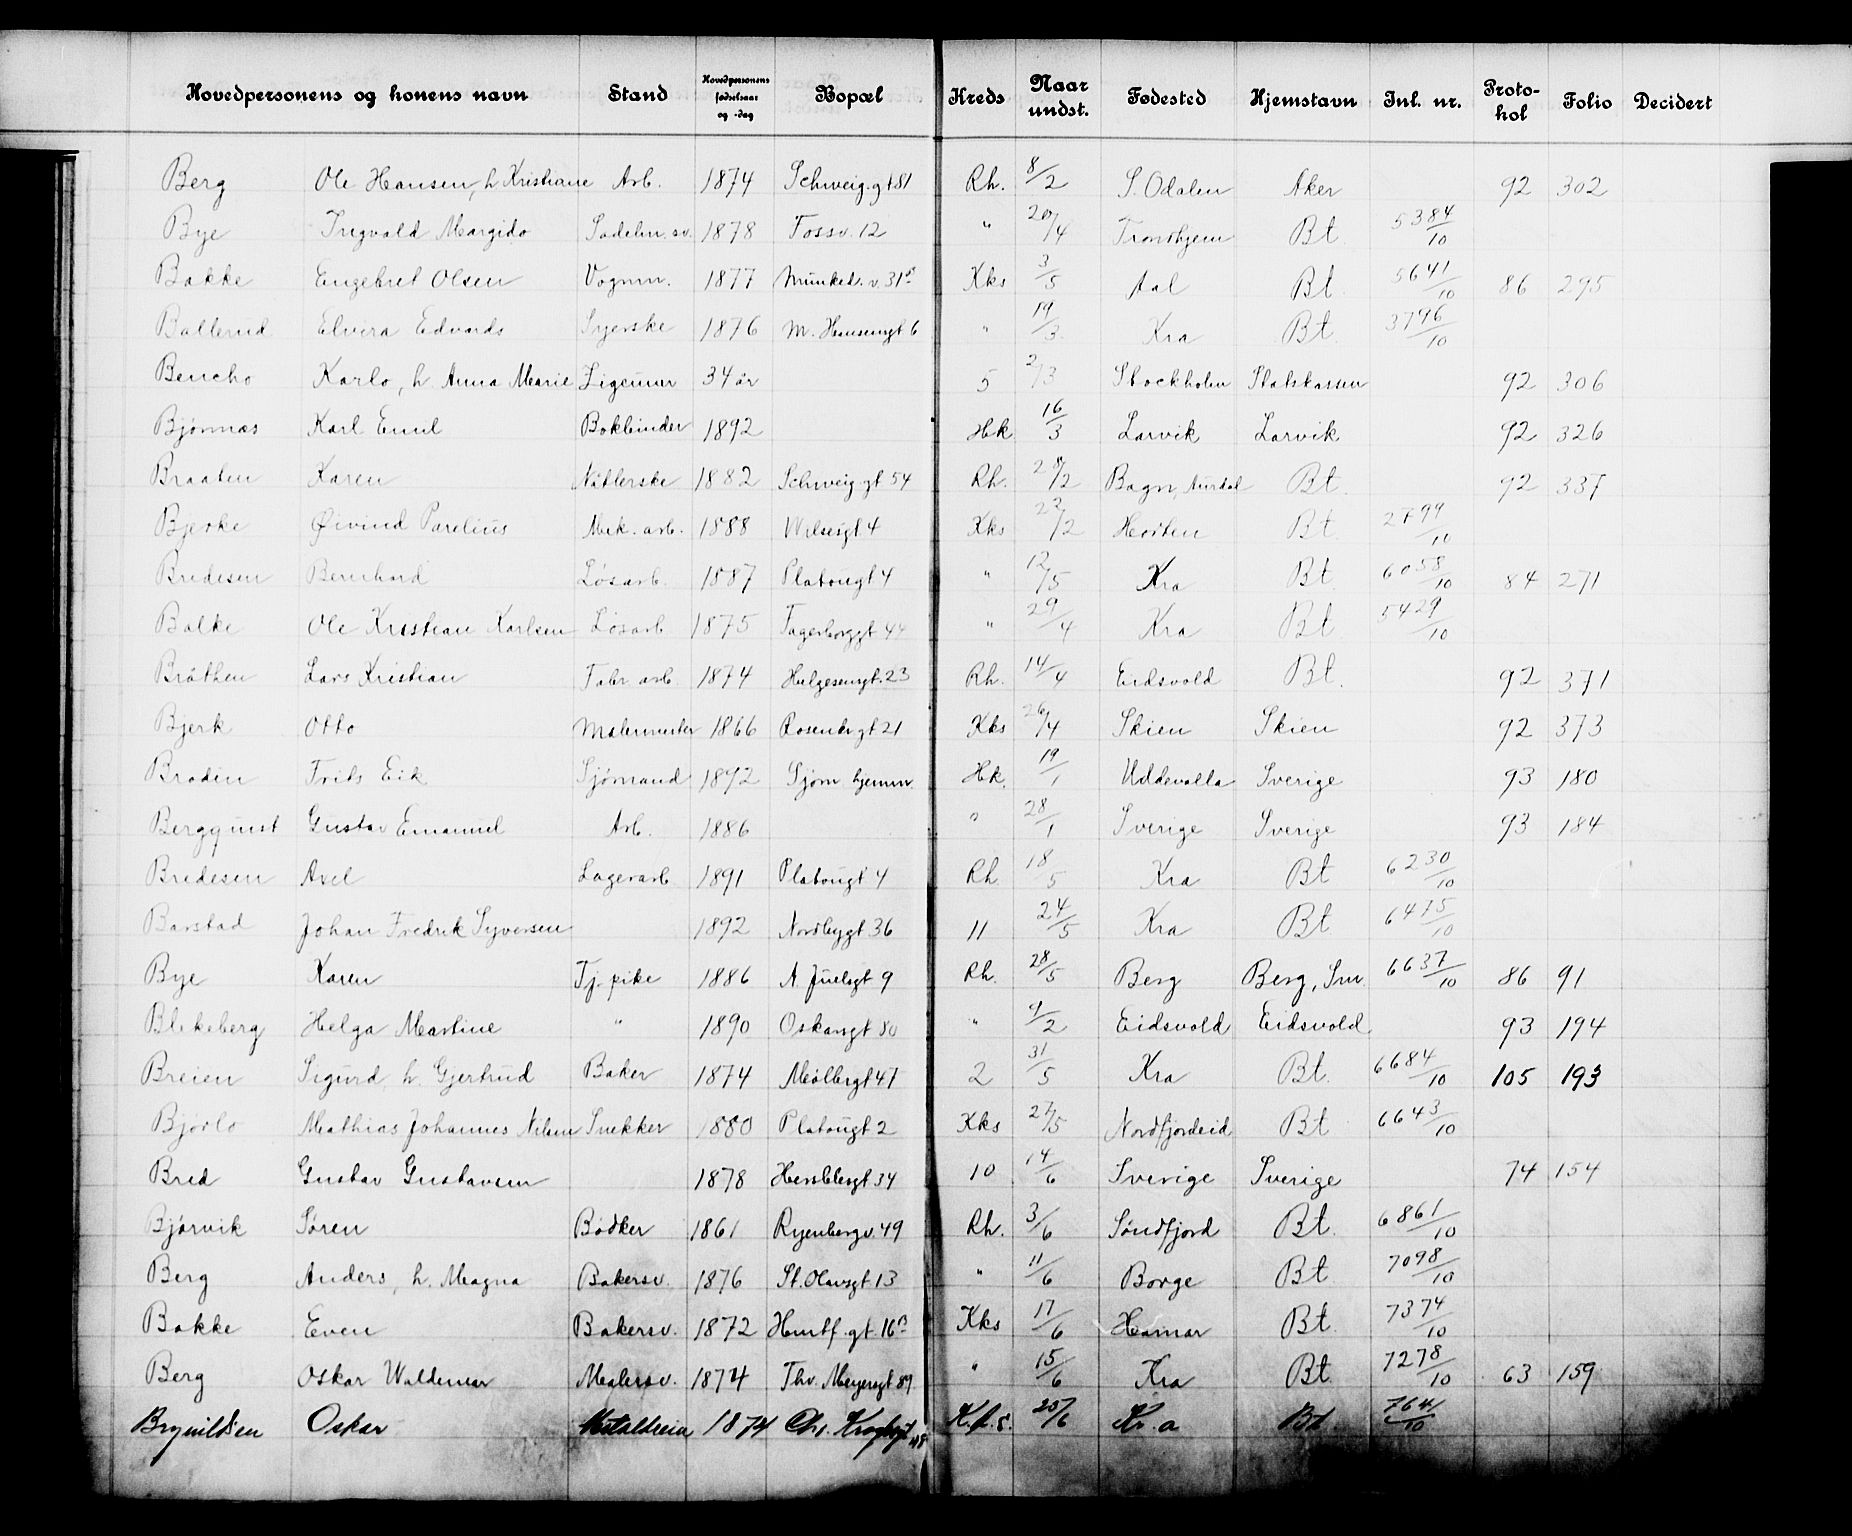 Hovedpersonens og konens navn Stand Hovedpersonens fødselsaar og -dag Bopæl Kreds Naar undst. Fødested Hjemstavn Inl. nr. Protokol Folio Decidert
Berg Ole Hansen, h Kristiane Arb. 1874 Schweig.gt 81 Rh. 8/2 S. Odalen Aker 92 302
Bye Ingvald Margido Sadelm.sv. 1878 Fossv. 12 " 20/4 Trondhjem Bt. 5384/10
Bakke Engebret Olsen Vognm. 1877 Munked.v. 31 Kks 3/5 Aal Bt. 5641/10 86 295
Ballerud Elvira Edvards Syerske 1876 M. Hansensgt 6 " 19/3 Kra Bt. 3796/10
Bencho Karlo, h. Anna Marie Zigeuner 34 år 5 2/3 Stockholm Statskassen 92 306
Bjønnæs Karl Emil Bokbinder 1892 Hk 16/3 Larvik Larvik 92 326
Braaten Karen Nåtlerske 1882 Schweig.gt 54 Rh. 28/2 Bagn, Aurdal Bt. 92 337
Bjerke Øivind Parelius Mek. arb. 1888 Wilsesgt 4 Kks 22/2 Horten Bt 2799/10
Bredesen Bernhard Løsarb. 1887 Platougt 4 " 12/5 Kra Bt. 6058/10 84 271
Balke Ole Kristian Karlsen Løsarb 1875 Fagerborggt 44 " 29/4 Kra Bt 5429/10
Bråthen Lars Kristian Fabr. arb. 1874 Helgesensgt. 23 Rh. 14/4 Eidsvold Bt. 92 371
Bjerk Otto Malermester 1866 Rosenb.gt 21 Kks 26/4 Skien Skien 92 373
Brodin Frits Eik Sjømand 1892 Sjøm. hjemm. Hk. 19/1 Uddevalla Sverige 93 180
Bergquist Gustav Emanuel Arb. 1886 " 28/1 Sverige Sverige 93 184
Bredesen Axel Lagerarb 1891 Platougt 4 Rh. 18/5 Kra Bt 6230/10
Barstad Johan Fredrik Syversen 1892 Nordbygt 36 11 24/5 Kra Bt 6475/10
Bye Karen Tj. pike 1886 A. Juelsgt 9 Rh. 28/5 Berg Berg, Sm. 6637/10 86 91
Blekeberg Helga Martine " 1890 Oskarsgt 80 " 9/2 Eidsvold Eidsvold 93 194
Breien Sigurd h. Gjertrud Baker 1874 Møllergt 47 2 31/5 Kra Bt. 6684/10 105 193
Bjørlo Mathias Johannes Nilsen Snekker 1880 Platougt 2 Kks 27/5 Nordfjordeid Bt 6643/10
Bred Gustav Gustavsen 1878 Herslebsgt 34 10 14/6 Sverige Sverige 74 154
Bjørvik Søren Bødker 1861 Ryenbergv. 49 Rh. 3/6 Søndfjord Bt. 6861/10
Berg Anders, h. Magna Bakersv. 1876 St. Olavsgt. 13 " 11/6 Borge Bt 7098/10
Bakke Even Bakersv. 1872 Huitf. gt. 16 B Kks 17/6 Hamar Bt 7374/10
Berg Oskar Waldemar Malersv. 1874 Thv. Meyersgt 89 " 15/6 Kra Bt. 7278/10 63 159
Brynildsen Oskar 1874 Chr. Kroghsgt 48 K.k.s. 25/6 Kr.a Bt. 7641/10